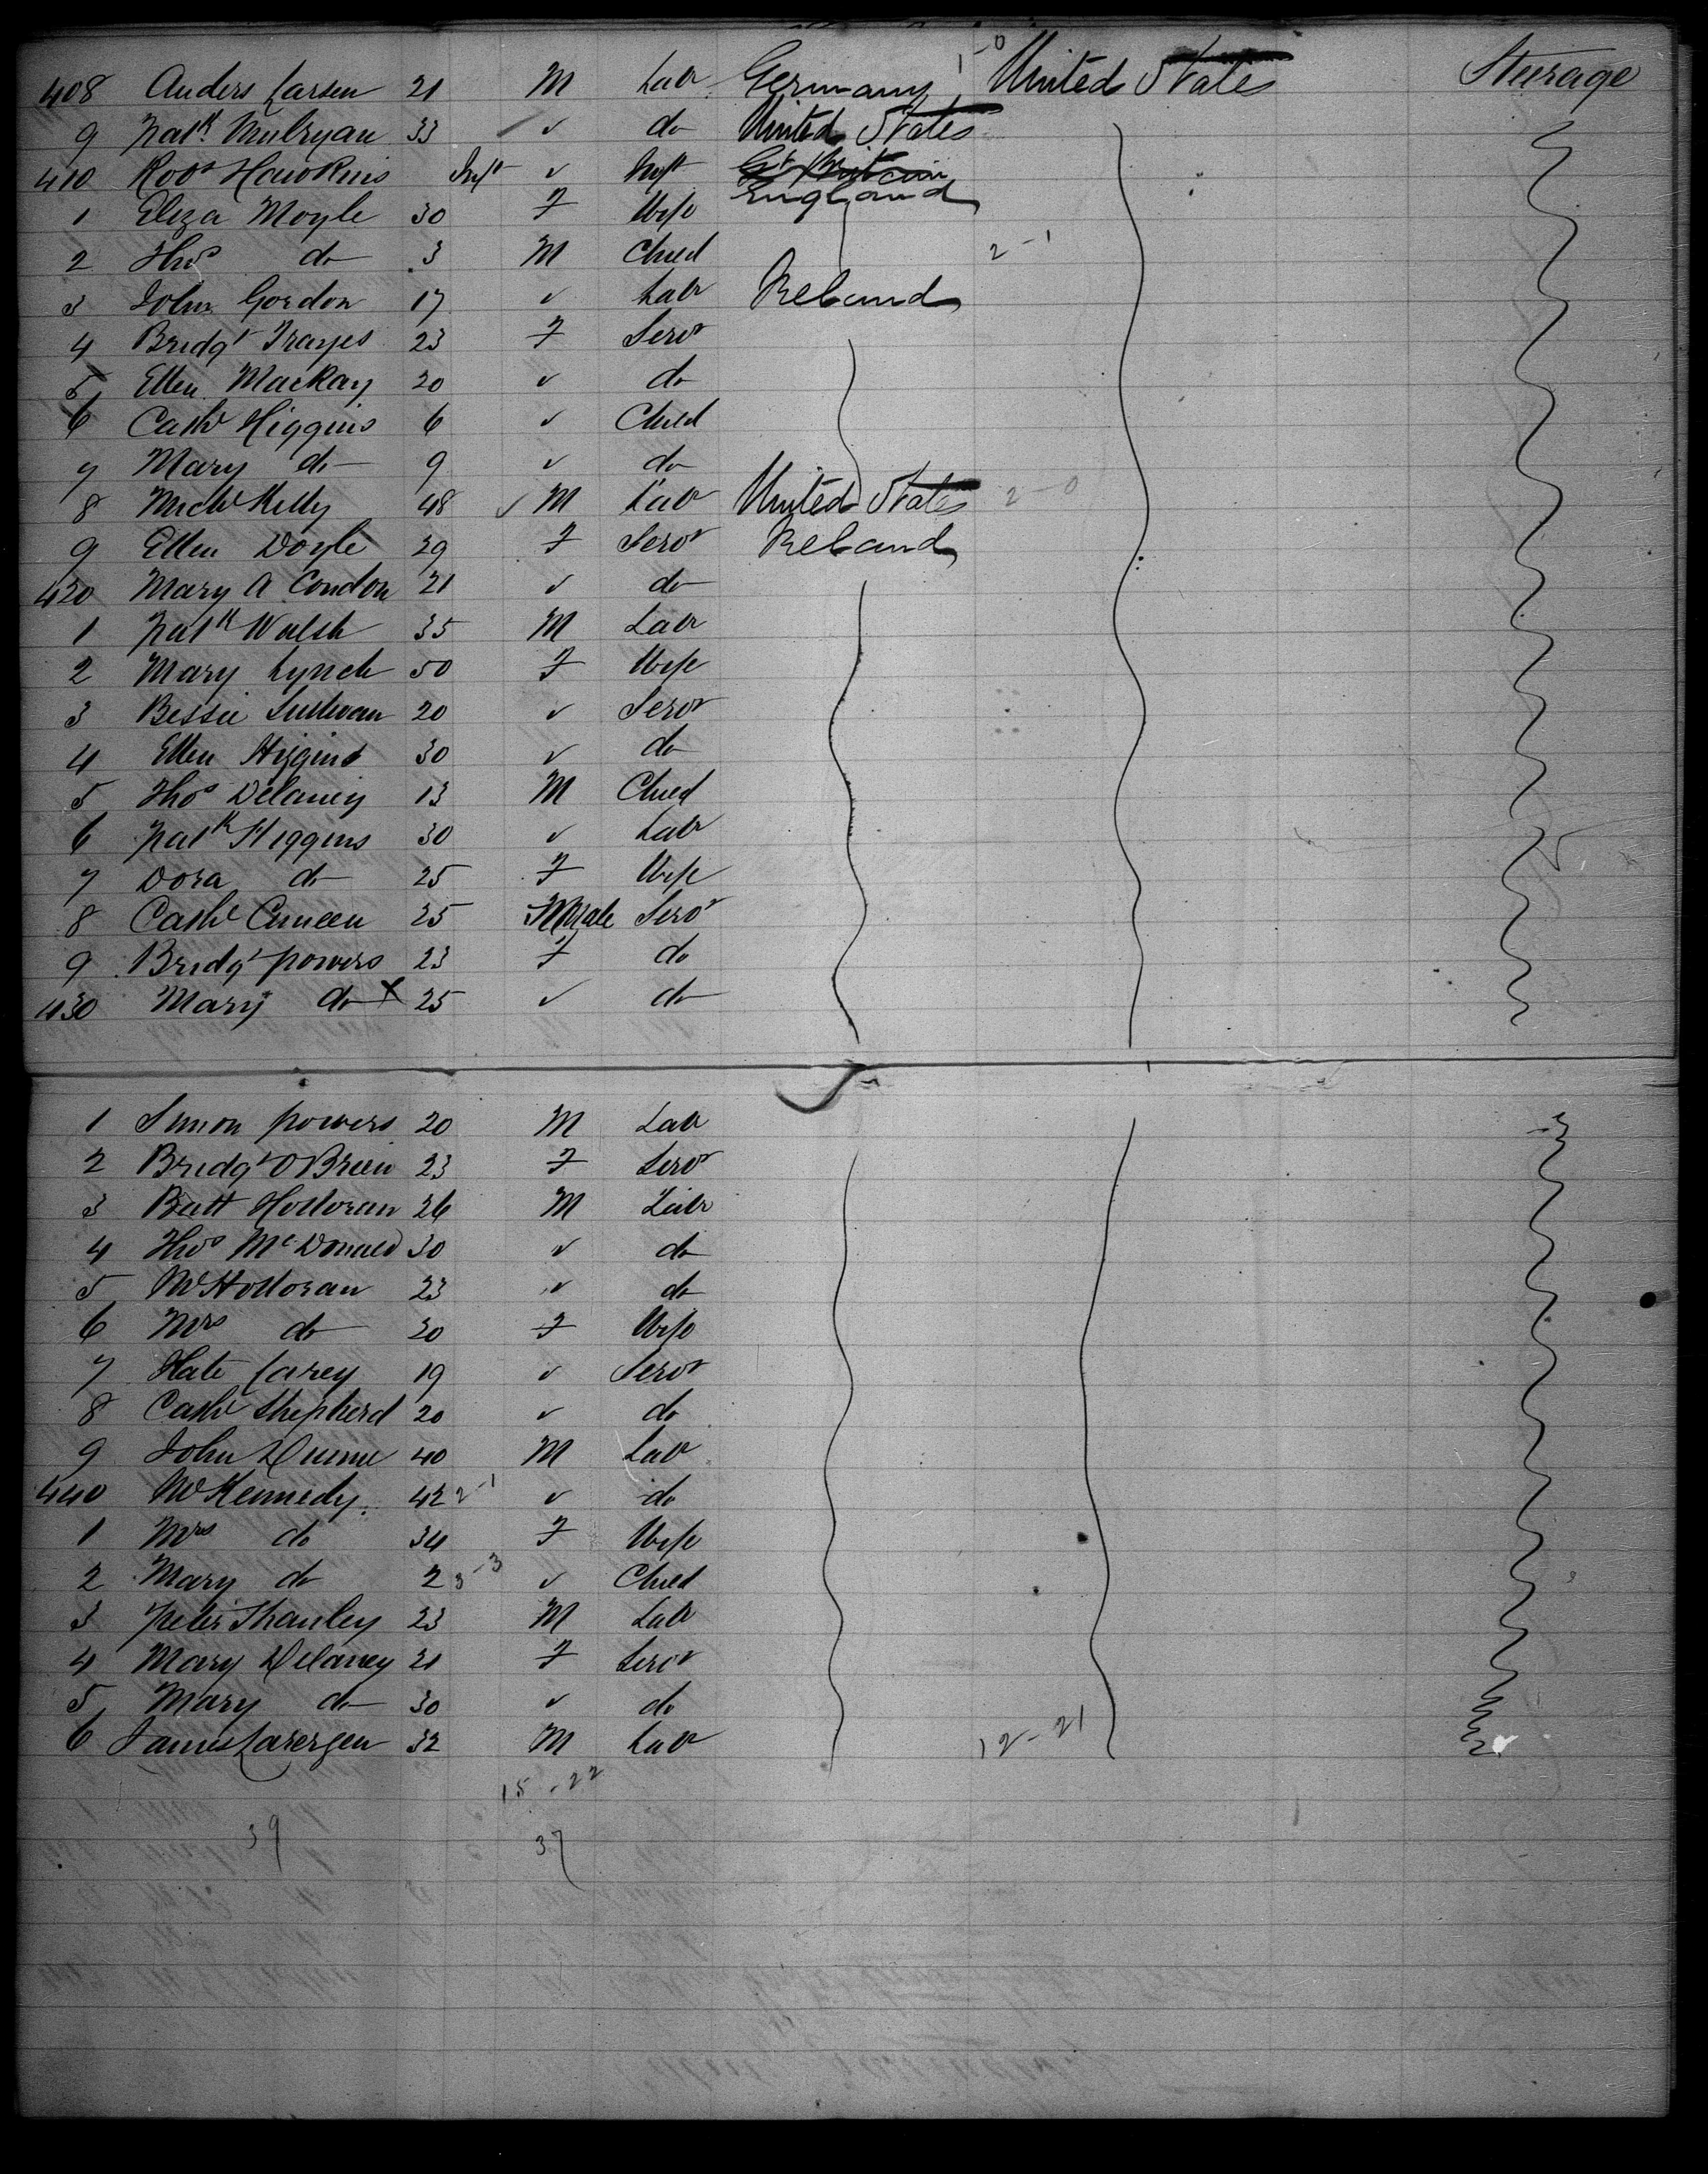 408 Anders Larsen 21 M Labr Germany 1-0 United States Steerage
9 Patk. Mulryan 33 ✓ do United States
410 Robt Hawkins Inft ✓ Inft Gt Britain
England
1 Eliza Moyle 30 F Wife
2 Thos do 3 M Child 2-1
3 John Gordon 17 ✓ Labr Ireland
4 Bridgt Trayes 23 F Servt
5 Ellen MacKay 20 ✓ do
6 Cathe Higgins 6 ✓ Child
7 Mary do 9 ✓ do
8 Michl Kelly 48 ✓ M Labr United States 2-0
9 Ellen Doyle 29 F Servt Ireland
420 Mary A Condon 21 ✓ do
1 Patk Walsh 35 M Labr
2 Mary Lynch 50 F Wife
3 Bessie Sullivan 20 ✓ Servt
4 Ellen Higgins 30 ✓ do
5 Thos Delaney 13 M Child
6 Patk Higgins 30 ✓ Labr
7 Dora do 25 F Wife
8 Cathe Cuneen 25 Servt
9 Bridgt Powers 23 F do
430 Mary do X 25 ✓ do
1 Simon Powers 20 M Labr
2 Bridgt O'Brien 23 F Servt
3 Batt Holloran 26 M Labr
4 Thos McDonald 30 ✓ do
5 Mr Holloran 23 ✓ do
6 Mrs do 20 F Wife
7 Kate Carey 19 ✓ Servt
8 Cathe Shepherd 20 ✓ do
9 John Dunne 40 M Labr
440 Mr Kennedy 42 2-1 ✓ do
1 Mrs do 34 F Wife
2 Mary do 2 3-3 ✓ Child
3 Peter Shanley 23 M Labr
4 Mary Delaney 21 F Servt
5 Mary do 30 ✓ do
6 James 32 M Labr 12-21
15-22
39 37